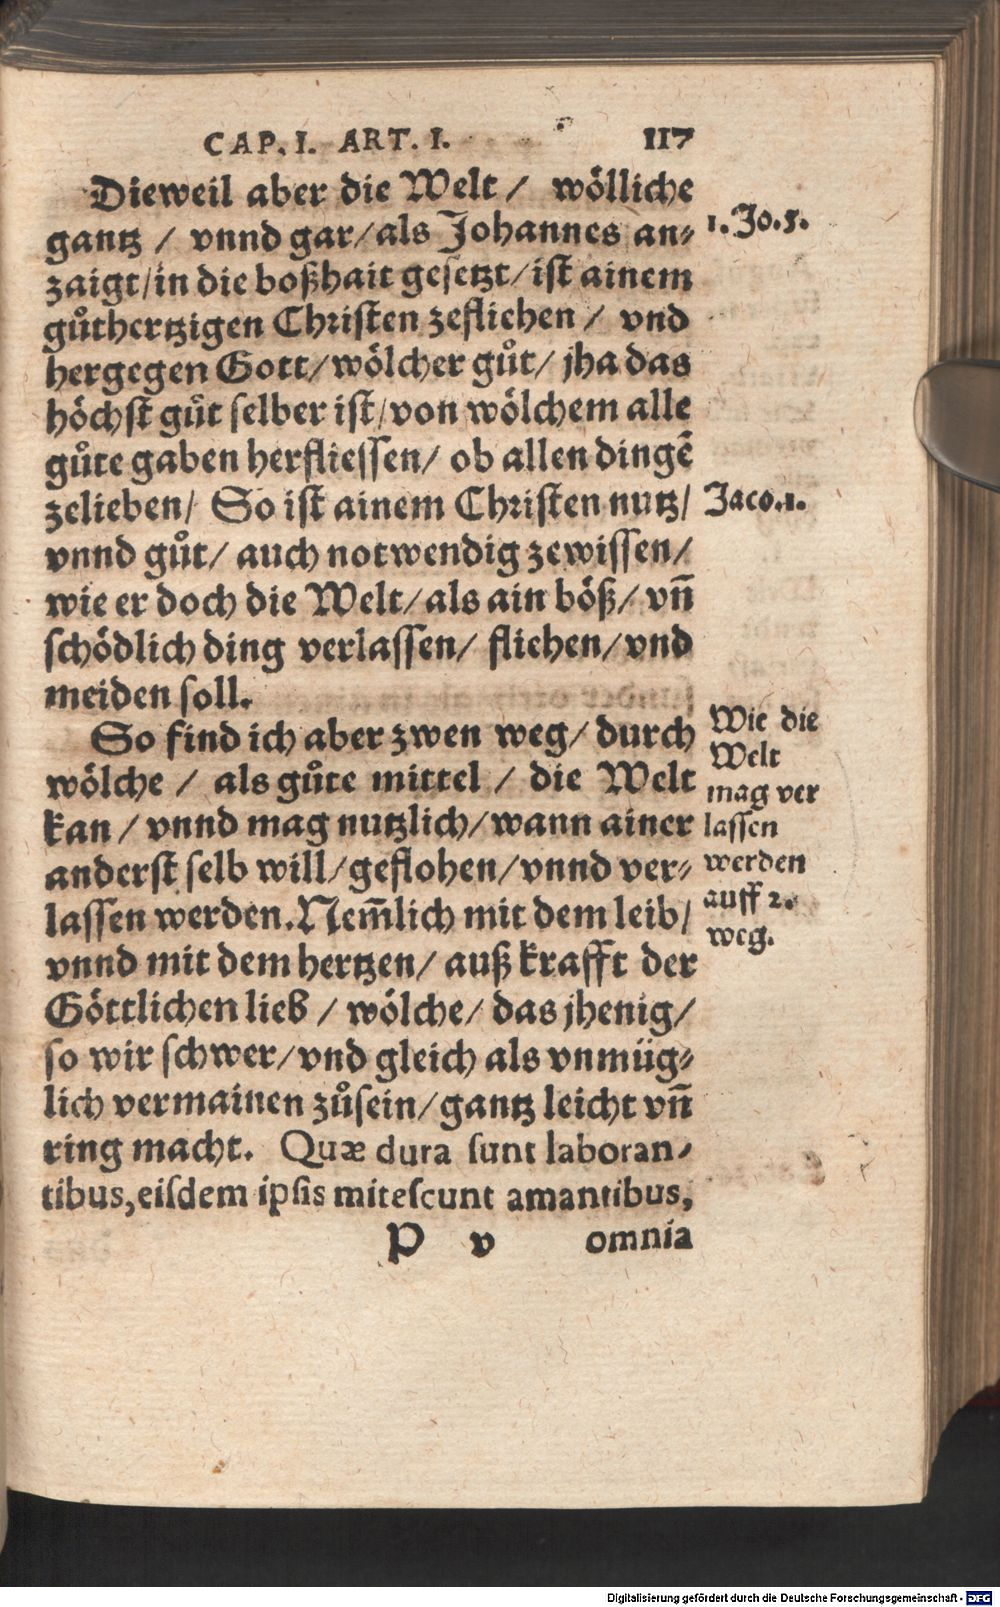 CAP. I. ART. I. 117
Dieweil aber die Welt / wölliche
gantz / vnnd gar / als Johannes an⸗
zaigt / in die boßhait gesetzt / ist ainem
gůthertzigen Christen zefliehen / vnd
hergegen Gott / wölcher gůt / jha das
höchst gůt selber ist / von wölchem alle
gůte gaben herfliessen / ob allen dingẽ
zelieben / So ist ainem Christen nutz /
vnnd gůt / auch notwendig zewissen /
wie er doch die Welt / als ain böß / vñ
schödlich ding verlassen / fliehen / vnd
meiden soll.
1. Jo. 5.
Jaco. 1.
So find ich aber zwen weg / durch
wölche / als gůte mittel / die Welt
kan / vnnd mag nutzlich / wann ainer
anderst selb will / geflohen / vnnd ver⸗
lassen werden. Nem̃lich mit dem leib /
vnnd mit dem hertzen / auß krafft der
Göttlichen lieb / wölche / das jhenig /
so wir schwer / vnd gleich als vnmüg⸗
lich vermainen zůsein / gantz leicht vñ
ring macht. Quæ dura sunt laboran⸗
tibus, eisdem ipsis mitescunt amantibus,
Wie die
Welt
mag ver
lassen
werden
auff 2.
weg.
P v omnia
Digitalisierung gefördert durch die Deutsche Forschungsgemeinschaft - DFG